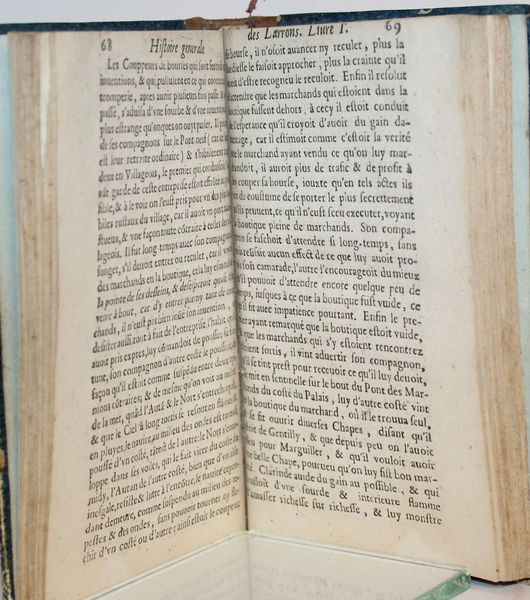 68 Histoire generale
Les Couppeurs de bourses qui sont
inuentions, & qui pullulent en ce qui
tromperie, apres auoir plusieurs fois
passé, s'aduisa d'vne fourbe & d'vne
plus estrange qu'onques on ouyt parler. Il
de ses compagnons sur le Pont neuf (car
est leur retraite ordinaire) & s'habillerent
deux en Villageois, le premier qui
garde de ceste entreprise estoit
sible, & à le voir on l'eust pris pour vn des plus
rustaux du village, car il auoit vn port
& vne façon toute côtraire à celles des
lageois. Il fut long-temps auec son compagnon
songer, s'il deuoit entrer ou reculer, car
des marchands en la boutique, cela luy
la pointe de ses desseins, & desesperoit
venir à bout, car d'y entrer parmy tant de
chands, il n'eust pas bien ioüé son inuention
desister aussi tout à fait de l'entreprise, l'habit
auoit pris expres, luy cōmandoit de pousser sa
tune, son compagnon d'autre costé le poussoit
façon qu'il estoit comme suspendu entre deux
nions côtraires; & de mesme qu'on voit au
de la mer, quād l'Autā & le Nort s'entrechoq
& que le Ciel à long tortis se resout en
en pluyes, le nauire au milieu des ondes est
pousse d'vn costé, tātost de l'autre: le Nort
loppe dans ses voiles, qui le fait virer du costé du
midy, l'Autan de l'autre costé, bien que d'vn
inesgale, resiste & lutte à l'encōtre, le nauire
dant demeure, comme suspendu au milieu des
pestes & des ondes, sans pouuoir tourner ny
chir d'vn costé ou d'autre: ainsi estoit le coupeur
des Larrons. Liure I. 69
bourse, il n'osoit auancer ny reculer, plus la
le faisoit approcher, plus la crainte qu'il
d'estre recogneu le reculoit. Enfin il resolut
d'attendre que les marchands qui estoient dans la
boutique fussent dehors, à cecy il estoit conduit
l'esperance qu'il croyoit d'auoir du gain
car il estimoit comme c'estoit la verité
le marchand ayant vendu ce qu'on luy
il auroit plus de trafic & de profit à
couper sa bourse, iouxte qu'en tels actes ils
de coustume de se porter le plus secrettement
peuuent, ce qu'il n'eust sceu executer, voyant
boutique pleine de marchands. Son
se faschoit d'attendre si long-temps, sans
aucun effect de ce que luy auoit
son camarade, l'autre l'encourageoit du mieux
pouuoit d'attendre encore quelque peu de
iusques à ce que la boutique fust vuide, ce
fit auec impatience pourtant. Enfin le
ayant remarqué que la boutique estoit vuide,
que les marchands qui s'y estoient rencontrez
sortis, il vint aduertir son compagnon,
se tint prest pour receuoir ce qu'il luy deuoit,
en sentinelle sur le bout du Pont des
du costé du Palais, luy d'autre costé vint
boutique du marchand, où il le trouua seul,
se fit ouurir diuerses Chapes, disant qu'il
de Gentilly, & que depuis peu on l'auoit
pour Marguiller, & qu'il vouloit auoir
belle Chape, pourueu qu'on luy fist bon
Clarinde auide du gain au possible, & qui
d'vne sourde & interieure flamme
amasser richesse sur richesse, & luy monstre